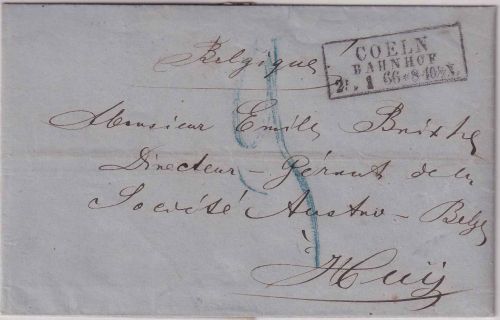 Belgique
COELN
BAHNHOF
1 66 8-10
Monsieur Emile
Directeur-Gérant de la
Société Austro-Belge
à
Huÿ